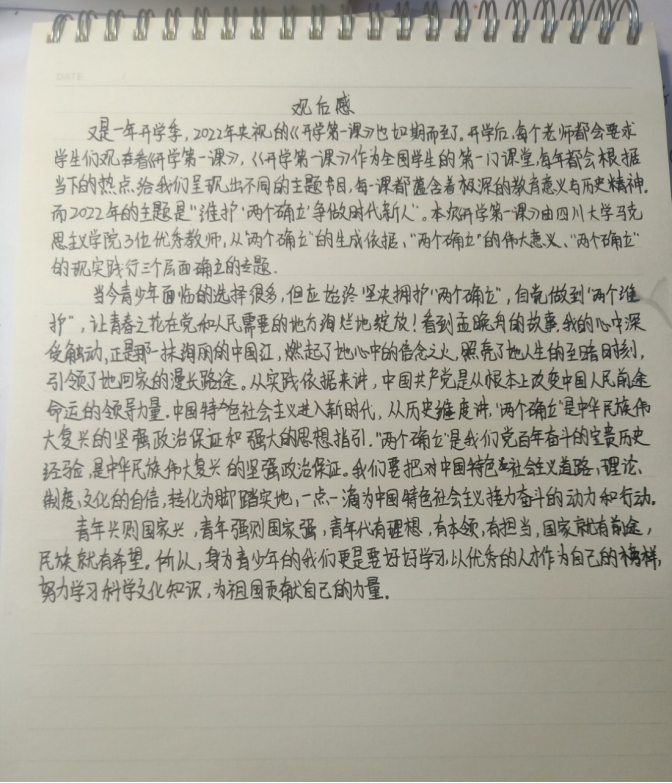 DATE /
观后感
又是一年开学季，2022年央视的《开学第一课》也如期而至了。开学后，每个老师都会要求
学生们观看《开学第一课》，《开学第一课》作为全国学生的第一门课堂，每年都会根据
当下的热点，给我们呈现出不同的主题节目，每一课都蕴含着极深的教育意义与历史精神。
而2022年的主题是“维护‘两个确立’争做时代新人”。本次《开学第一课》由四川大学马克
思主义学院3位优秀教师，从“两个确立”的生成依据、“两个确立”的伟大意义、“两个确立”
的现实践行三个层面确立的专题.
当今青少年面临的选择很多，但应始终坚决拥护“两个确立”，自觉做到“两个维
护”，让青春之花在党和人民需要的地方绚烂地绽放！看到孟晚舟的故事，我的心中深
受触动，正是那一抹绚丽的中国红，燃起了她心中的信念之火，照亮了她人生的至暗时刻，
引领了她回家的漫长路途。从实践依据来讲，中国共产党是从根本上改变中国人民前途
命运的领导力量。中国特色社会主义进入新时代，从历史维度讲，“两个确立”是中华民族伟
大复兴的坚强政治保证和强大的思想指引。“两个确立”是我们党百年奋斗的宝贵历史
经验，是中华民族伟大复兴的坚强政治保证。我们要把对中国特色社会主义道路、理论、
制度、文化的自信，转化为脚踏实地，一点一滴为中国特色社会主义接力奋斗的动力和行动。
青年兴则国家兴，青年强则国家强，青年代有理想，有本领，有担当，国家就有前途，
民族就有希望。所以，身为青少年的我们更是要好好学习，以优秀的人才作为自己的榜样，
努力学习科学文化知识，为祖国贡献自己的力量。